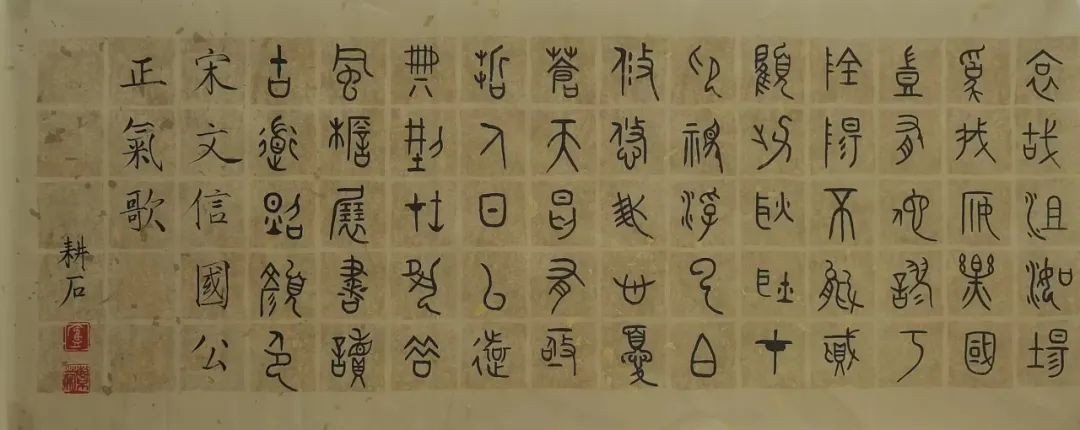 哀哉沮洳場
為我安樂國
豈有他謬巧
陰陽不能賊
顧此耿耿在
仰視浮雲白
悠悠我心憂
蒼天曷有極
哲人日已遠
典型在夙昔
風檐展書讀
古道照顏色
宋文信國公
正氣歌
耕石